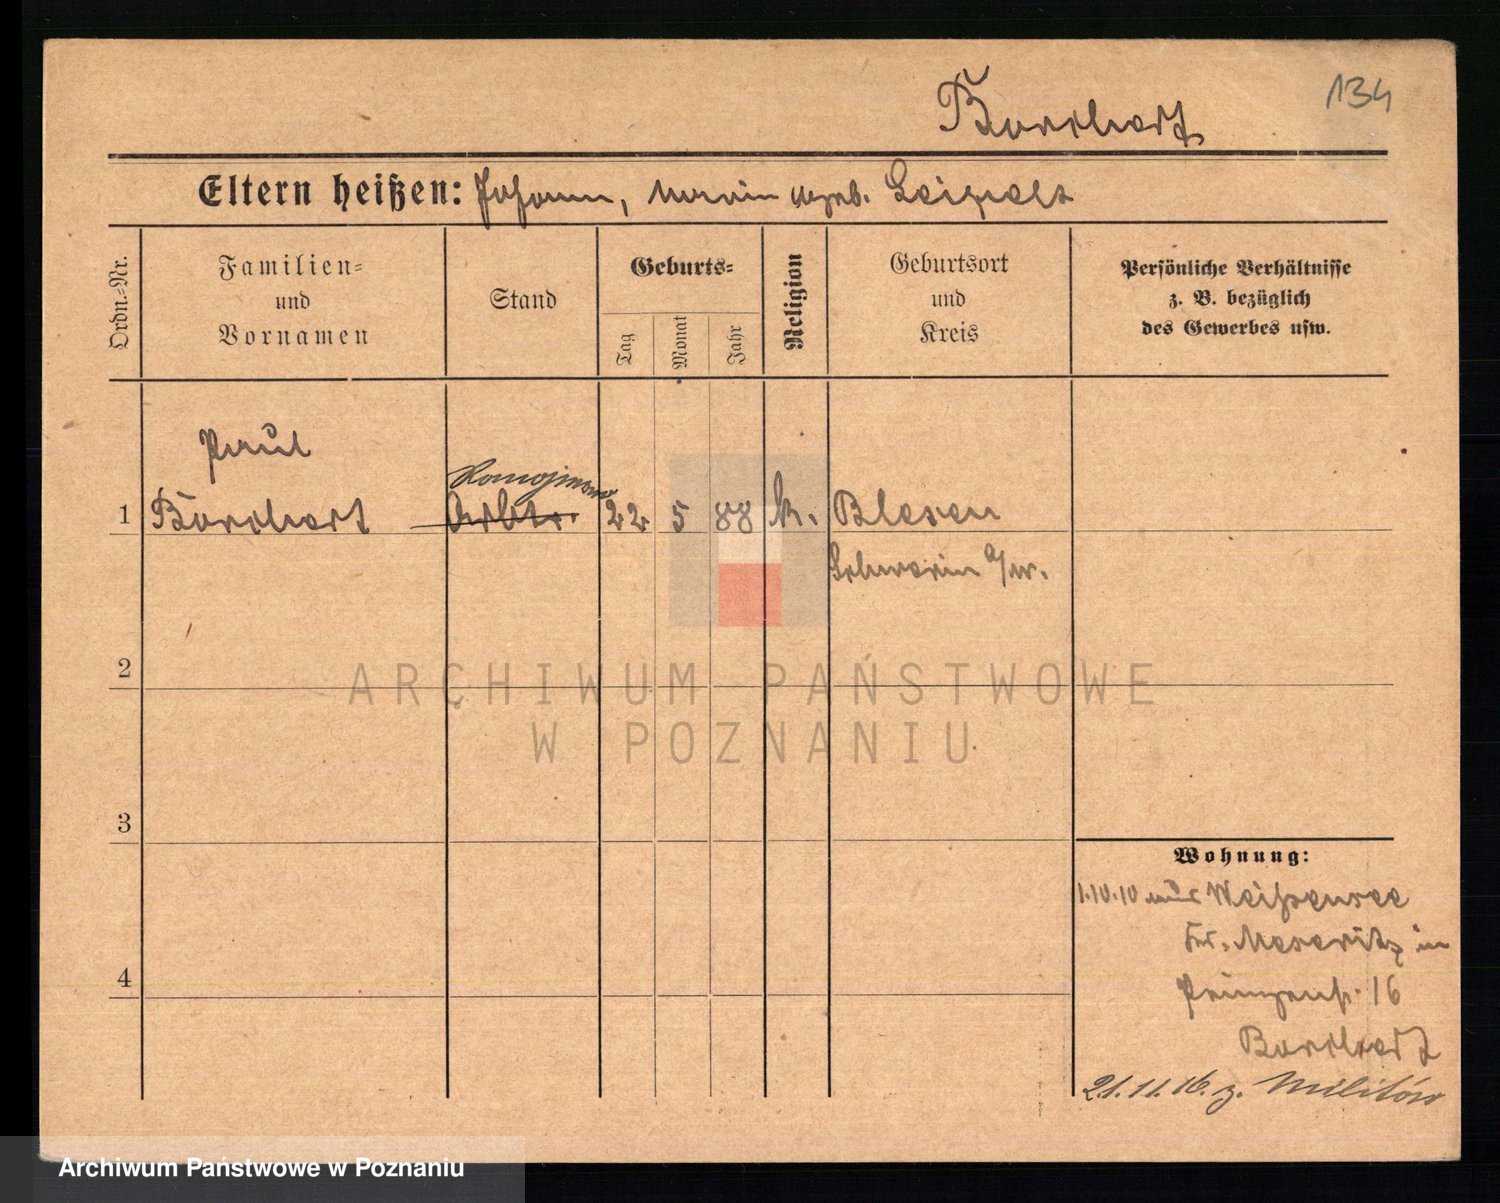 Borchert
134
Eltern heißen: Johann, Maria geb.
Ordn.=Nr.
Familien=
und
Vornamen
Stand
Geburts=
Tag
Monat
Jahr
Religion
Geburtsort
und
Kreis
Persönliche Verhältnisse
z. B. bezüglich
des Gewerbes usw.
Paul
1 Borchert Arbtr. 22 5 88 k. Blesen
Schwerin a/W.
2
3
4
Wohnung:
1.10.10 aus Weißensee
Kr. Meseritz in
Prinzenstr. 16
Borchert
21.11.16. z. Militär
ARCHIWUM PAŃSTWOWE
W POZNANIU
Archiwum Państwowe w Poznaniu